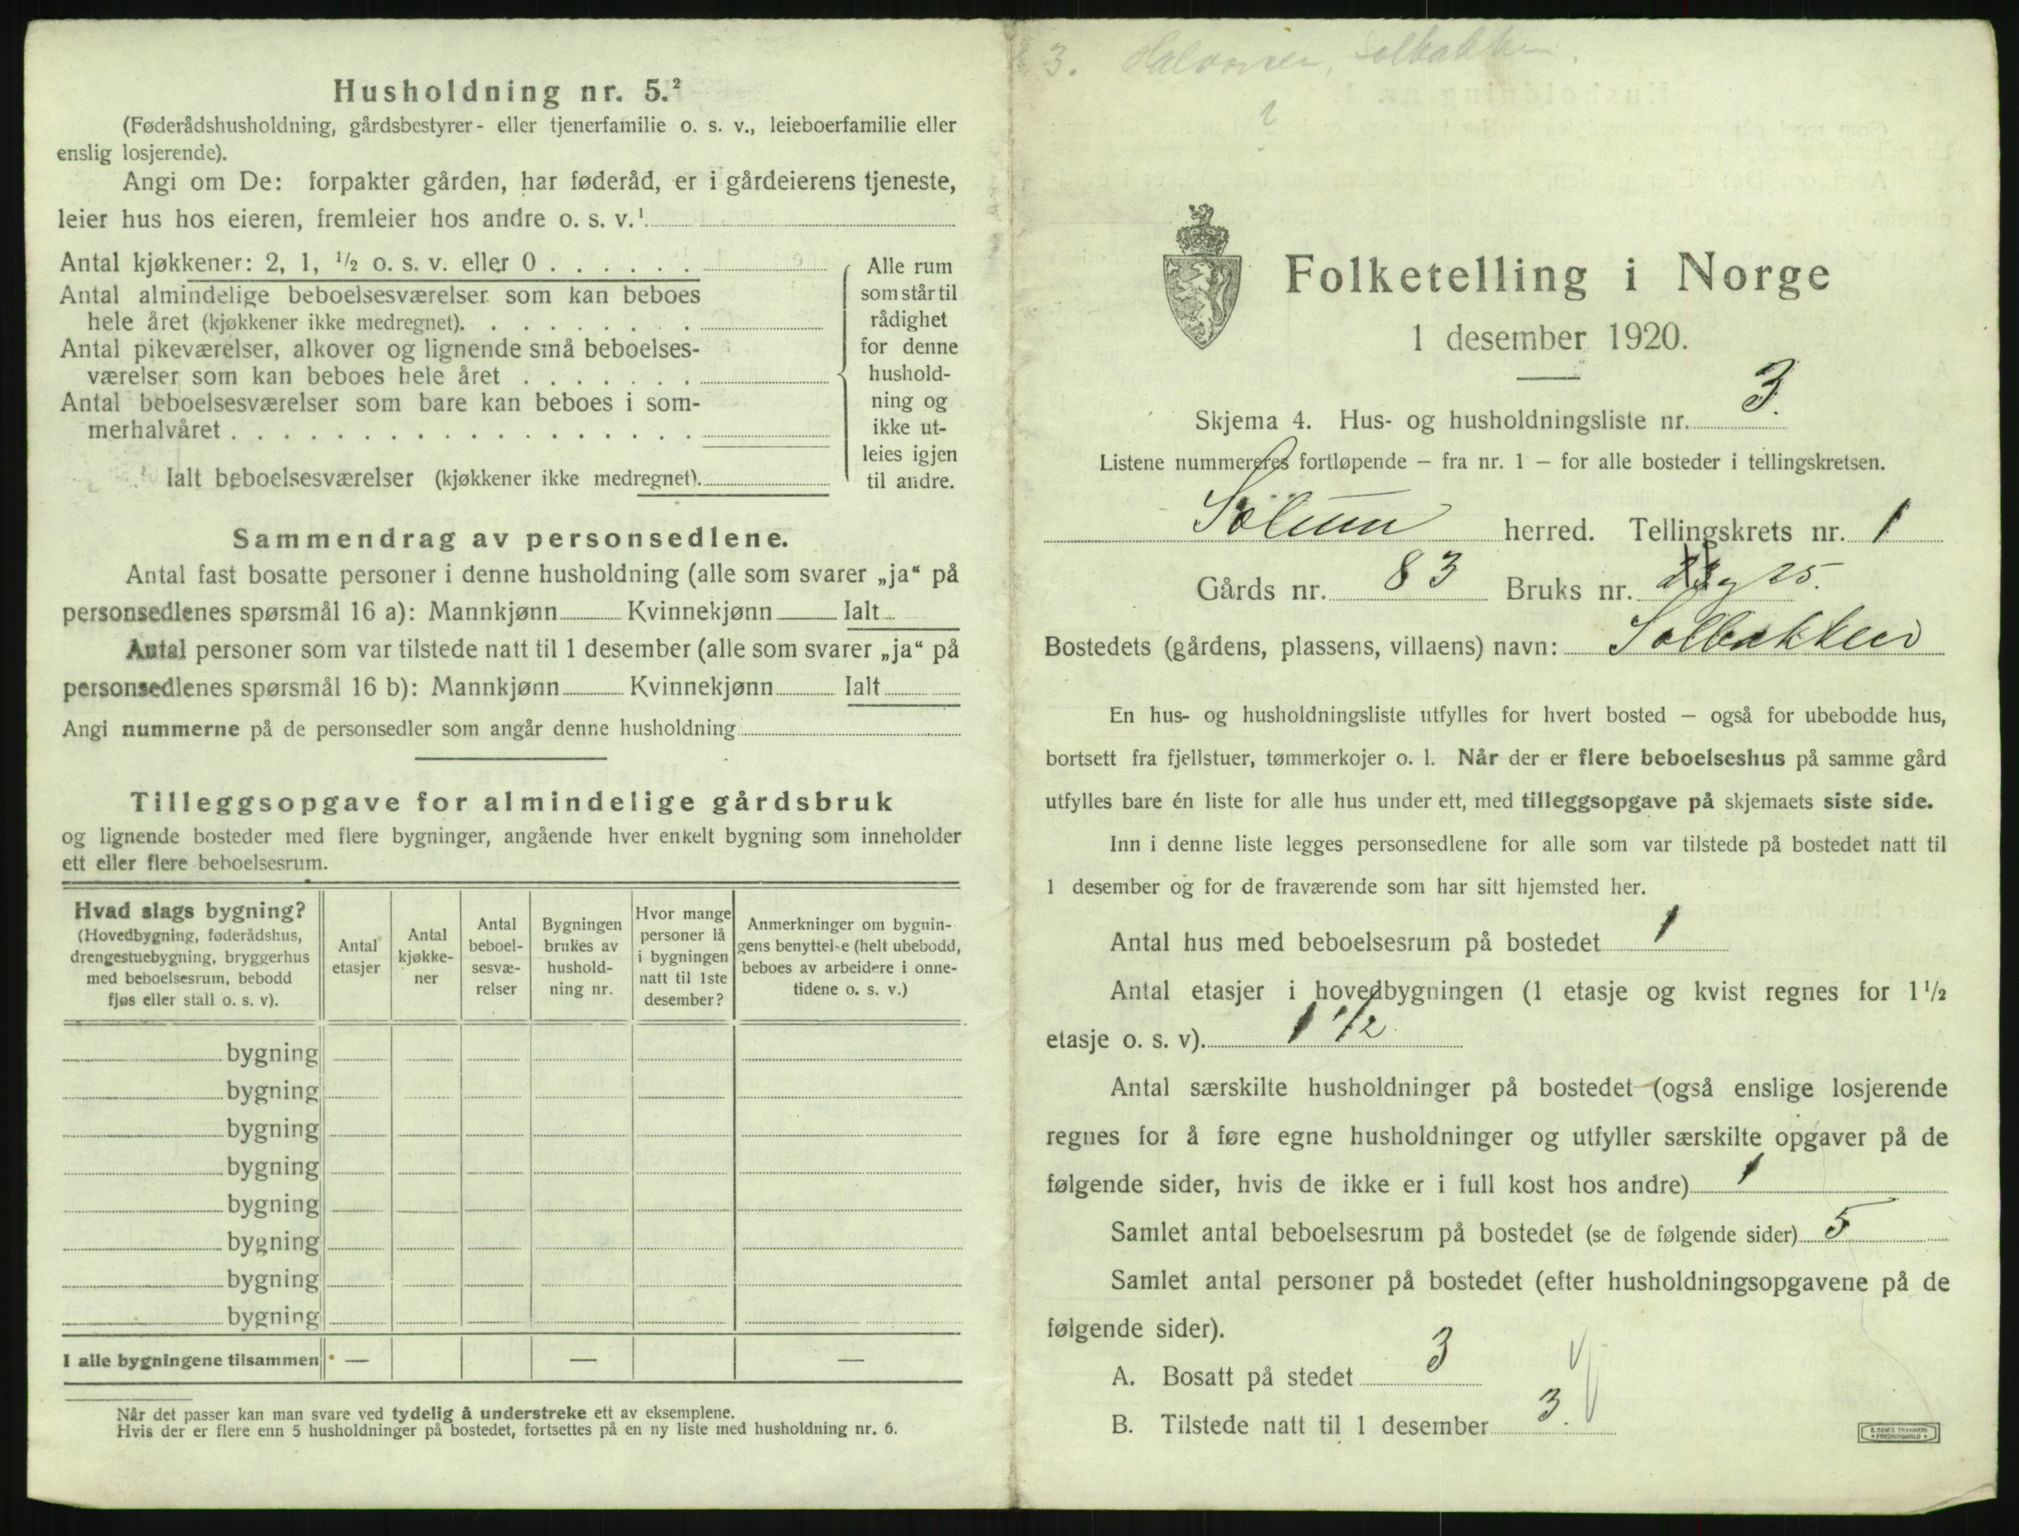 Husholdning nr. 5.²
(Føderådshusholdning, gårdsbestyrer- eller tjenerfamilie o. s. v., leieboerfamilie eller
enslig losjerende).
Angi om De: forpakter gården, har føderåd, er i gårdeierens tjeneste,
leier hus hos eieren, fremleier hos andre o. s. v.¹
Antal kjøkkener: 2, 1, ½ o. s. v. eller 0 . . . . . .
Antal almindelige beboelsesværelser som kan beboes
hele året (kjøkkener ikke medregnet). . . . . . . . .
Antal pikeværelser, alkover og lignende små beboelses-
værelser som kan beboes hele året . . . . . . .
Antal beboelsesværelser som bare kan beboes i som-
merhalvåret . . . . . . . . . . . . . . . . .
Ialt beboelsesværelser (kjøkkener ikke medregnet).
Alle rum
som står til
rådighet
for denne
hushold-
ning og
ikke ut-
leies igjen
til andre.
Sammendrag av personsedlene.
Antal fast bosatte personer i denne husholdning (alle som svarer „ja“ på
personsedlenes spørsmål 16 a): Mannkjønn Kvinnekjønn Ialt
Antal personer som var tilstede natt til 1 desember (alle som svarer „ja“ på
personsedlenes spørsmål 16 b): Mannkjønn Kvinnekjønn Ialt
Angi nummerne på de personsedler som angår denne husholdning
Tilleggsopgave for almindelige gårdsbruk
og lignende bosteder med flere bygninger, angående hver enkelt bygning som inneholder
ett eller flere beboelsesrum.
Hvad slags bygning?
(Hovedbygning, føderådshus,
drengestuebygning, bryggerhus
med beboelsesrum, bebodd
fjøs eller stall o. s. v).
Antal
etasjer
Antal
kjøkke-
ner
Antal
beboel-
sesvæ-
relser
Bygningen
brukes av
hushold-
ning nr.
Hvor mange
personer lå
i bygningen
natt til 1ste
desember?
Anmerkninger om bygnin-
gens benyttelse (helt ubebodd,
beboes av arbeidere i onne-
tidene o. s. v.)
bygning
bygning
bygning
bygning
bygning
bygning
bygning
bygning
I alle bygningene tilsammen — — —
Når det passer kan man svare ved tydelig å understreke ett av eksemplene.
Hvis der er flere enn 5 husholdninger på bostedet, fortsettes på en ny liste med husholdning nr. 6.
3. Halvorsen, Solbakken
Folketelling i Norge
1 desember 1920.
Skjema 4. Hus- og husholdningsliste nr. 3.
Listene nummereres fortløpende – fra nr. 1 – for alle bosteder i tellingskretsen.
Solum herred. Tellingskrets nr. 1
Gårds nr. 83 Bruks nr. 25.
Bostedets (gårdens, plassens, villaens) navn: Solbakken
En hus- og husholdningsliste utfylles for hvert bosted – også for ubebodde hus,
bortsett fra fjellstuer, tømmerkojer o. l. Når der er flere beboelseshus på samme gård
utfylles bare én liste for alle hus under ett, med tilleggsopgave på skjemaets siste side.
Inn i denne liste legges personsedlene for alle som var tilstede på bostedet natt til
1 desember og for de fraværende som har sitt hjemsted her.
Antal hus med beboelsesrum på bostedet 1
Antal etasjer i hovedbygningen (1 etasje og kvist regnes for 1½
etasje o. s. v). 1 1/2
Antal særskilte husholdninger på bostedet (også enslige losjerende
regnes for å føre egne husholdninger og utfyller særskilte opgaver på de
følgende sider, hvis de ikke er i full kost hos andre) 1
Samlet antal beboelsesrum på bostedet (se de følgende sider) 5
Samlet antal personer på bostedet (efter husholdningsopgavene på de
følgende sider).
A. Bosatt på stedet 3
B. Tilstede natt til 1 desember 3.